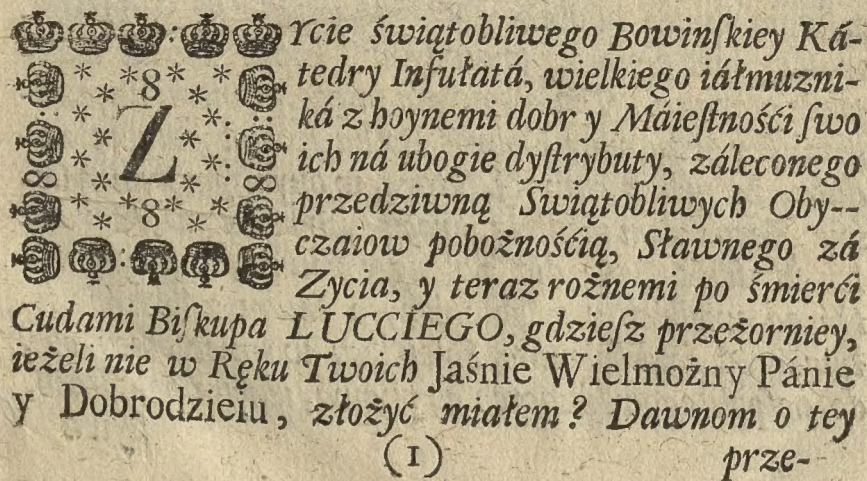 ZYcie świątobliwego Bowinſkiey Ká-
tedry Infułatá, wielkiego iáłmuzni-
ká z hoynemi dobr y Máieſtnośći ſwo
ich ná ubogie dyſtrybuty, záleconego
przedziwną Swiątobliwych Oby--
czaiow pobożnośćią, Sławnego zá
Zycia, y teraz rożnemi po śmierći
Cudami Biſkupa LUCCIEGO, gdzieſz przeżorniey,
ieżeli nie w Ręku Twoich Jaśnie Wielmożny Pánie
y Dobrodzieiu, złożyć miałem? Dawnom o tey
(1) prze-